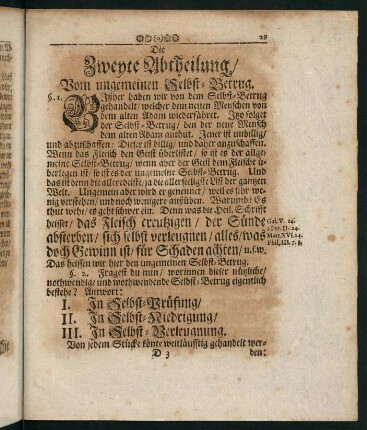 29
Die
Zweyte Abtheilung/
Vom ungemeinen Selbst-Betrug.
§. 1. Bißher haben wir von dem Selbst-Betrug
gehandelt/ welcher dem neuen Menschen von
dem alten Adam wiederfähret. Itzo folget
der Selbst-Betrug/ den der neue Mensch
dem alten Adam anthut. Jener ist unbillig/
und abzuschaffen: Dieser ist billig/ und daher anzuschaffen.
Wenn das Fleisch den Geist überlistet/ so ist es der allge-
meine Selbst-Betrug/ wenn aber der Geist dem Fleische ü-
berlegen ist/ so ist es der ungemeine Selbst-Betrug. Und
das ist denn die alleredelste/ ja die allerseligste List der gantzen
Welt. Ungemein aber wird er genennet/ weil es ihr we-
nig verstehen/ und noch wenigere ausüben. Warumb? Es
thut wehe/ es geht schwer ein. Denn was die Heil. Schrifft
heisset/ das Fleisch creutzigen/ der Sünde
absterben/ sich selbst verleugnen/ alles/ was
doch Gewinn ist/ für Schaden achten/ u.s.w.
Gal. V. 24.
1 Pet. II. 24.
Matt. XVI. 24.
Phil. III. 7. 8.
Das heissen wir hier den ungemeinen Selbst-Betrug.
§. 2. Fragest du nun/ worinnen dieser nützliche/
nothwendige und wohtwendende Selbst-Betrug eigentlich
bestehe? Antwort:
I. In Selbst-Prüfung/
II. In Selbst-Niedrigung/
III. In Selbst-Verleugnung.
Von jedem Stücke könte weitläufftig gehandelt wer-
D 3 den: